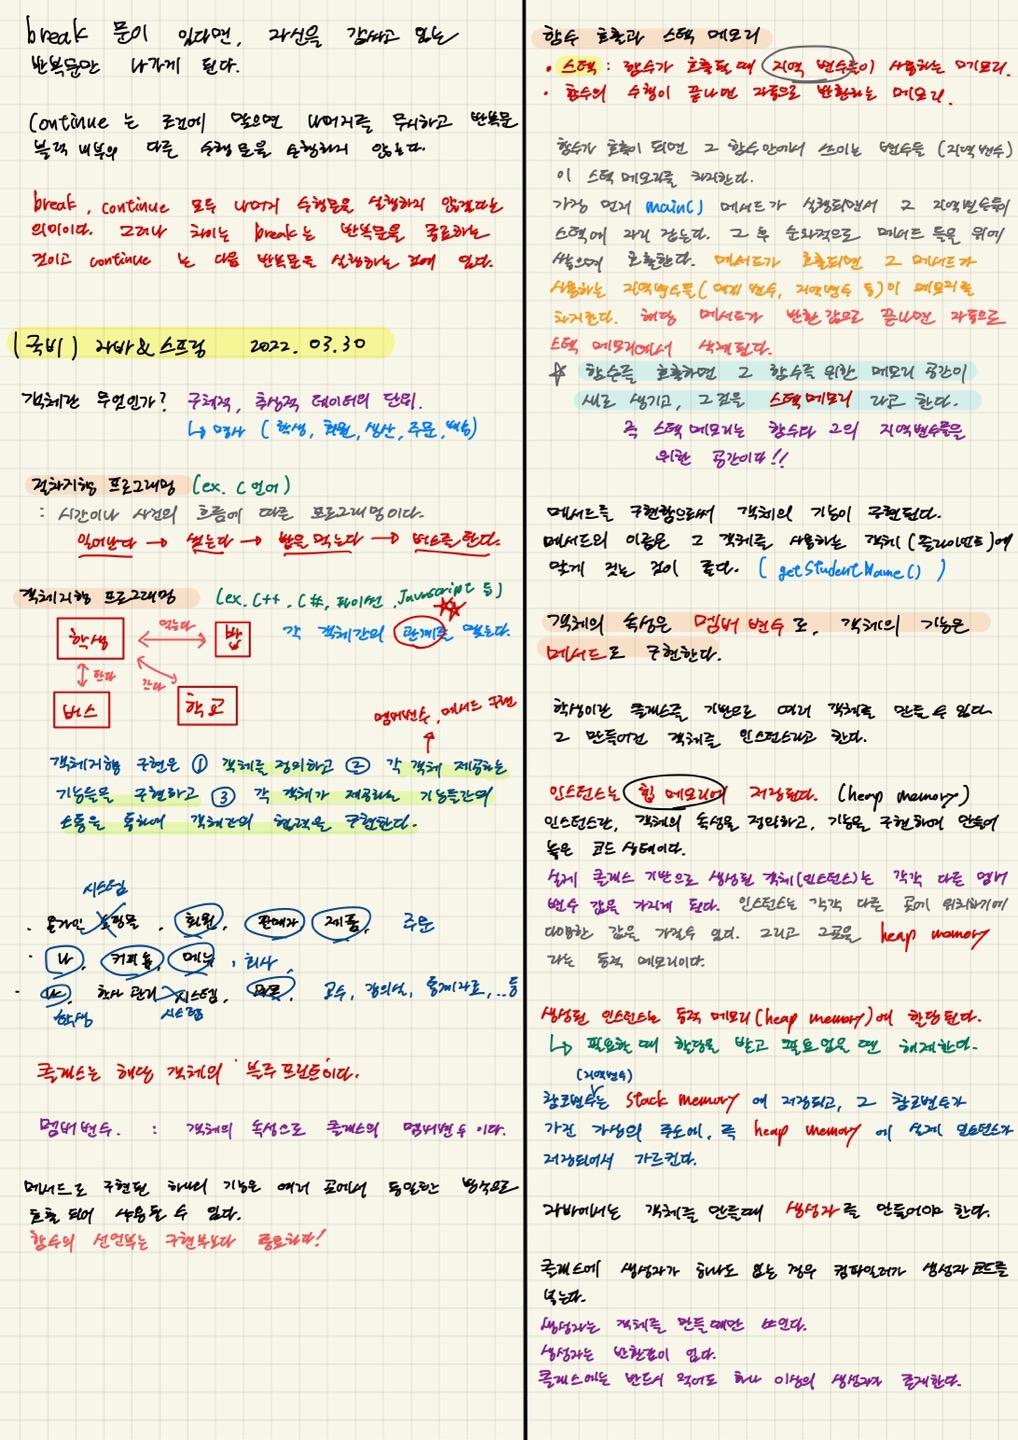 break 문이 있다면, 자신을 감싸고 있는
반복문만 나가게 된다.
Continue 는 조건에 맞으면 나머지를 무시하고 반복문
블럭 내부의 다른 수행문을 수행하지 않는다.
break, continue 모두 나머지 수행문을 실행하지 않겠다는
의미이다. 그러나 차이는 break는 반복문을 종료하는
것이고 continue 는 다음 반복문을 실행하는 것에 있다.
(국비) 자바&스프링 2022. 03.30
객체란 무엇인가? 구체적, 추상적 데이터의 단위.
↳ 명사 (학생, 회원, 생산, 주문, 배송)
절차지향 프로그래밍 (ex. C언어)
: 시간이나 사건의 흐름에 따른 프로그래밍이다.
일어난다 → 씻는다 → 밥을 먹는다 → 버스를 탄다.
객체지향 프로그래밍 (ex. C++, C#, 파이썬, Javascript 등)
학생 먹는다 밥
각 객체간의 관계를 맺는다.
탄다 간다
버스 학교
멤버변수, 메서드 구현
객체지향 구현은 ① 객체를 정의하고 ② 각 객체 제공하는
기능들을 구현하고 ③ 각 객체가 제공하는 기능들간의
소통을 통하여 객체간의 협력을 구현한다.
시스템
· 온라인 쇼핑몰, 회원, 판매자, 제품, 주문
· 나, 커피숍, 메뉴, 회사,
· 나, 학사 관리 시스템, 과목, 교수, 강의실, 통계자료, ..등
학생 시스템
클래스는 해당 객체의 '블루 프린트'이다.
멤버변수. : 객체의 속성으로 클래스의 멤버변수이다.
메서드로 구현된 하나의 기능은 여러 곳에서 동일한 방식으로
호출 되어 사용될 수 있다.
함수의 선언부는 구현부보다 중요하다!
함수 호출과 스택 메모리
· 스택 : 함수가 호출될 때 지역 변수들이 사용하는 메모리.
· 함수의 수행이 끝나면 자동으로 반환하는 메모리.
함수가 호출이 되면 그 함수 안에서 쓰이는 변수들 (지역변수)
이 스택 메모리를 차지한다.
가장 먼저 main() 메서드가 실행되면서 그 지역변수들이
스택에 자리 잡는다. 그 후 순차적으로 메서드 들을 위에
쌓으며 호출한다. 메서드가 호출되면 그 메서드가
사용하는 지역변수들(매개 변수, 지역변수 등)이 메모리를
차지한다. 해당 메서드가 반환 값으로 끝나면 자동으로
스택 메모리에서 삭제된다.
☆ 함수를 호출하면 그 함수를 위한 메모리 공간이
새로 생기고, 그것을 스택메모리 라고 한다.
즉 스택 메모리는 함수와 그의 지역변수들을
위한 공간이다!!
메서드를 구현함으로써 객체의 기능이 구현된다.
메서드의 이름은 그 객체를 사용하는 객체 (클라이언트)에
맞게 짓는 것이 좋다. (getStudentName())
객체의 속성은 멤버 변수로, 객체의 기능은
메서드로 구현한다.
학생이란 클래스를 기반으로 여러 객체를 만들 수 있다
그 만들어진 객체를 인스턴스라고 한다.
인스턴스는 힙 메모리에 저장된다. (heap memory)
인스턴스란, 객체의 속성을 정의하고, 기능을 구현하여 만들어
놓은 코드 상태이다.
실제 클래스 기반으로 생성된 객체(인스턴스)는 각각 다른 멤버
변수 값을 가지게 된다. 인스턴스는 각각 다른 곳에 위치하기에
다양한 값을 가질수 있다. 그리고 그곳을 heap memory
라는 동적 메모리이다.
생성된 인스턴스는 동적 메모리(heap memory)에 할당된다.
↳ 필요할 때 할당을 받고 필요없을 땐 해제한다.
(지역변수)
참조변수는 stack memory 에 저장되고, 그 참조변수가
가진 가상의 주소에, 즉 heap memory 에 실제 인스턴스가
저장되어서 가르킨다.
자바에서는 객체를 만들때 생성자를 만들어야 한다.
클래스에 생성자가 하나도 없는 경우 컴파일러가 생성자 코드를
넣는다.
생성자는 객체를 만들때만 쓰인다.
생성자는 반환값이 없다.
클래스에는 반드시 적어도 하나 이상의 생성자가 존재한다.